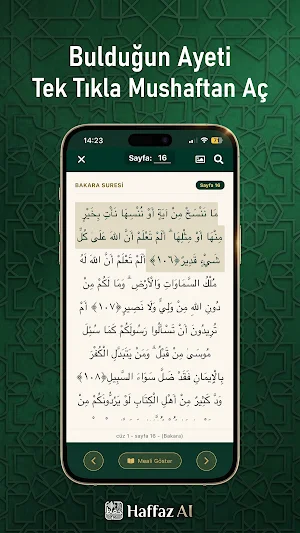 Bulduğun Ayeti
Tek Tıkla Mushaftan Aç
14:23
Sayfa: 16
BAKARA SURESİ
Sayfa 16
مَا نَنْسَخْ مِنْ اٰيَةٍ اَوْ نُنْسِهَا نَأْتِ بِخَيْرٍ
مِنْهَٓا اَوْ مِثْلِهَاۜ اَلَمْ تَعْلَمْ اَنَّ اللّٰهَ عَلٰى كُلِّ
شَيْءٍ قَد۪يرٌ ﴿١٠٦﴾ اَلَمْ تَعْلَمْ اَنَّ اللّٰهَ لَهُ
مُلْكُ السَّمٰوَاتِ وَالْاَرْضِۜ وَمَا لَكُمْ مِنْ
دُونِ اللّٰهِ مِنْ وَلِيٍّ وَلَا نَص۪يرٍ ﴿١٠٧﴾ اَمْ
تُر۪يدُونَ اَنْ تَسْـَٔلُوا رَسُولَكُمْ كَمَا سُئِلَ
مُوسٰى مِنْ قَبْلُۜ وَمَنْ يَتَبَدَّلِ الْكُفْرَ
بِالْا۪يمَانِ فَقَدْ ضَلَّ سَوَٓاءَ السَّب۪يلِ ﴿١٠٨﴾
وَدَّ كَث۪يرٌ مِنْ اَهْلِ الْكِتَابِ لَوْ يَرُدُّونَكُمْ
cüz 1 - sayfa 16 - (Bakara)
Meali Göster
Haffaz AI